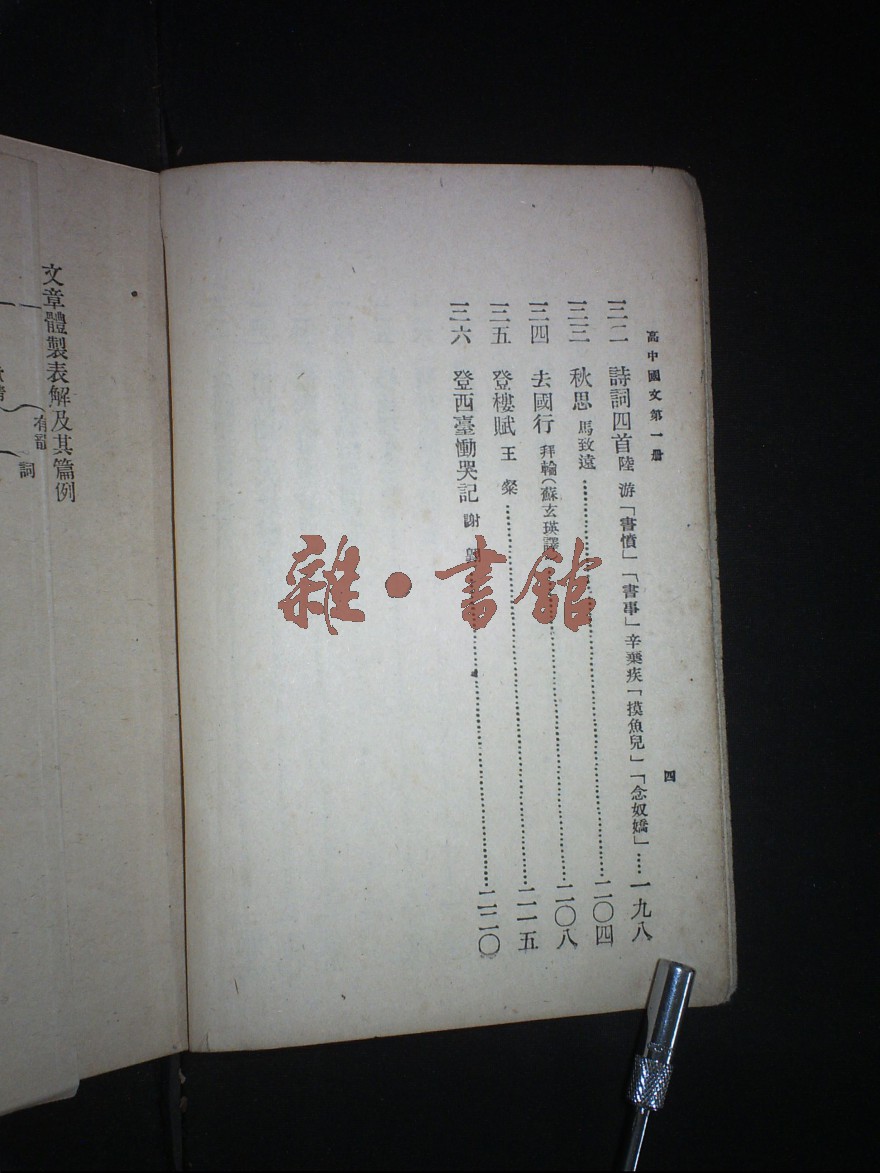 高中國文第一册
四
三二 詩詞四首 陸游「書憤」「書事」辛棄疾「摸魚兒」「念奴嬌」……一九八
三三 秋思 馬致遠……二〇四
三四 去國行 拜輪(蘇玄瑛譯……二〇八
三五 登樓賦 王粲……二一五
三六 登西臺慟哭記 謝翺……二二〇
文章體製表解及其篇例
有韻
詞
雜·書館